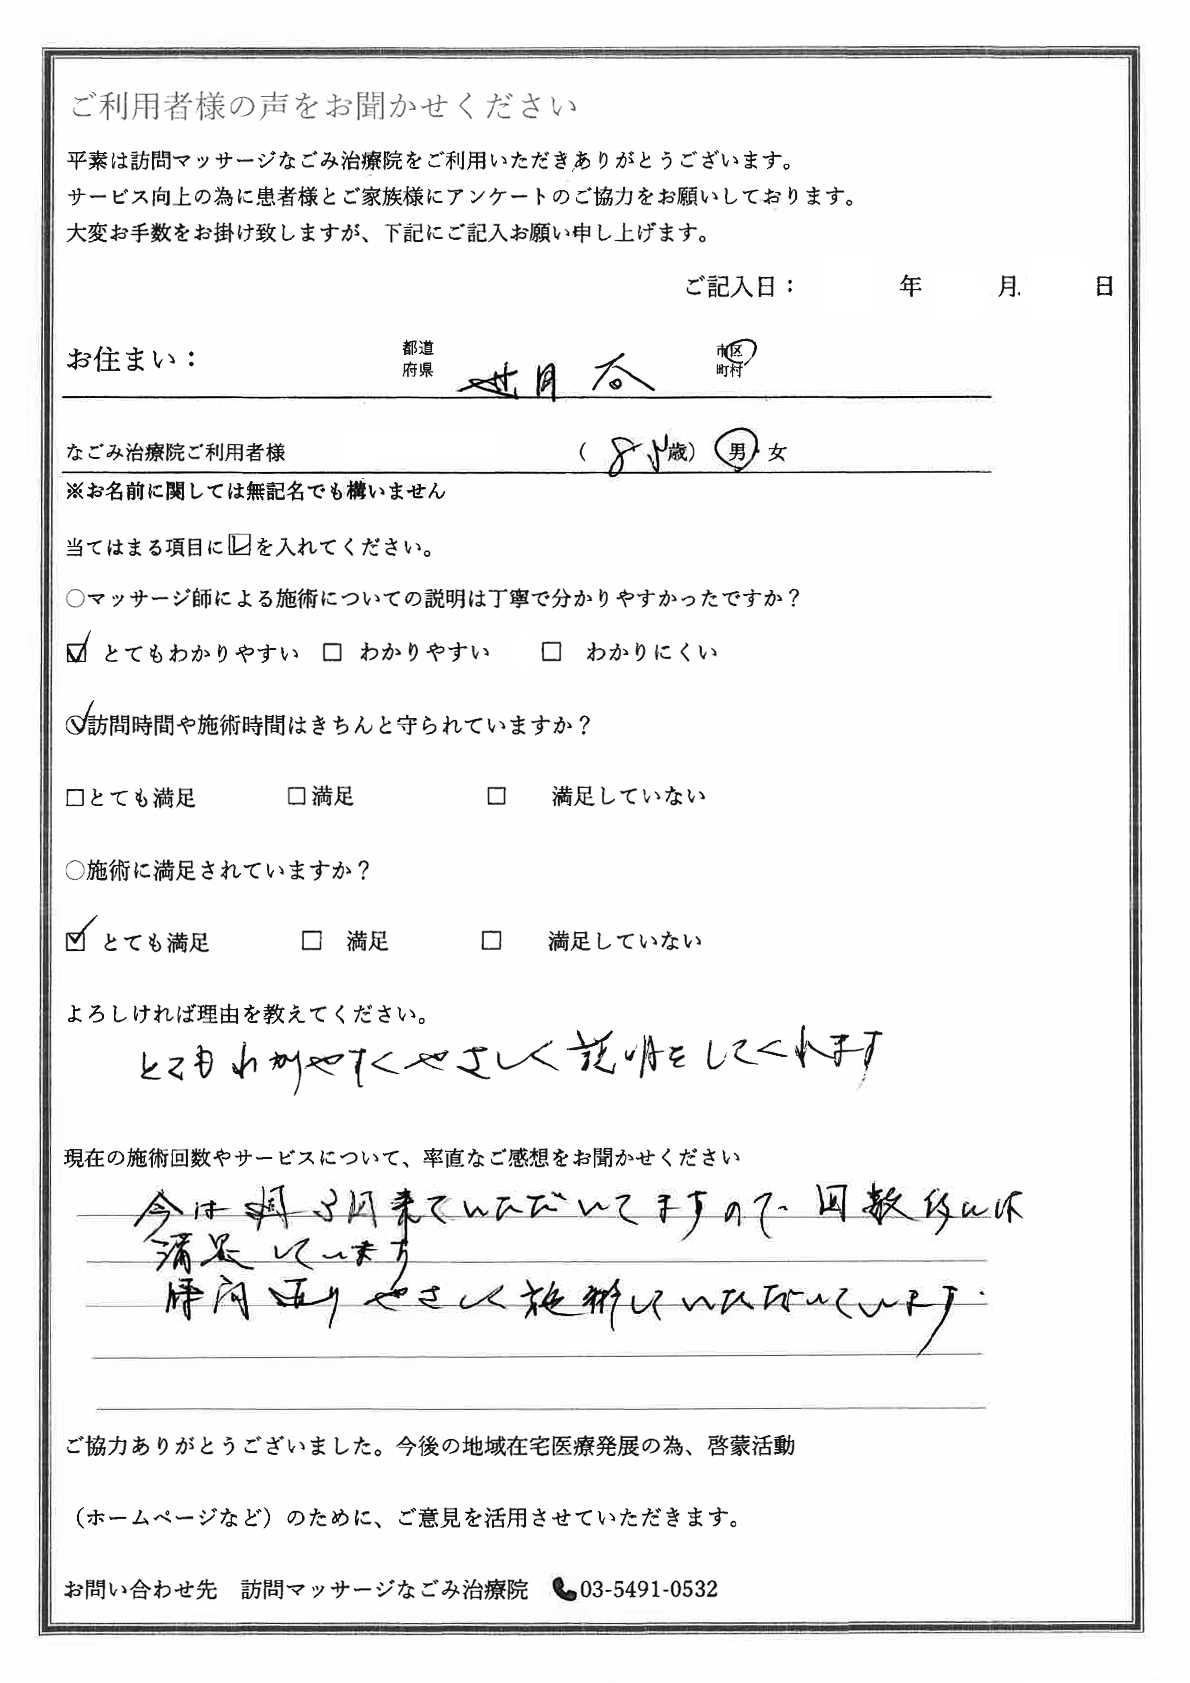 ご利用者様の声をお聞かせください
平素は訪問マッサージなごみ治療院をご利用いただきありがとうございます。
サービス向上の為に患者様とご家族様にアンケートのご協力をお願いしております。
大変お手数をお掛け致しますが、下記にご記入お願い申し上げます。
ご記入日： 年 月 日
お住まい： 都道府県 世田谷 市区町村
なごみ治療院ご利用者様 （ 85 歳） 男・女
※お名前に関しては無記名でも構いません
当てはまる項目に☑を入れてください。
○マッサージ師による施術についての説明は丁寧で分かりやすかったですか？
☑ とてもわかりやすい □ わかりやすい □ わかりにくい
○訪問時間や施術時間はきちんと守られていますか？
□とても満足 □満足 □ 満足していない
○施術に満足されていますか？
☑ とても満足 □ 満足 □ 満足していない
よろしければ理由を教えてください。
とてもわかりやすくやさしく説明をしてくれます
現在の施術回数やサービスについて、率直なご感想をお聞かせください
今は週3回来ていただいてますので、回数的には
満足しています
時間通りやさしく施術していただいています。
ご協力ありがとうございました。今後の地域在宅医療発展の為、啓蒙活動
（ホームページなど）のために、ご意見を活用させていただきます。
お問い合わせ先 訪問マッサージなごみ治療院 📞03-5491-0532